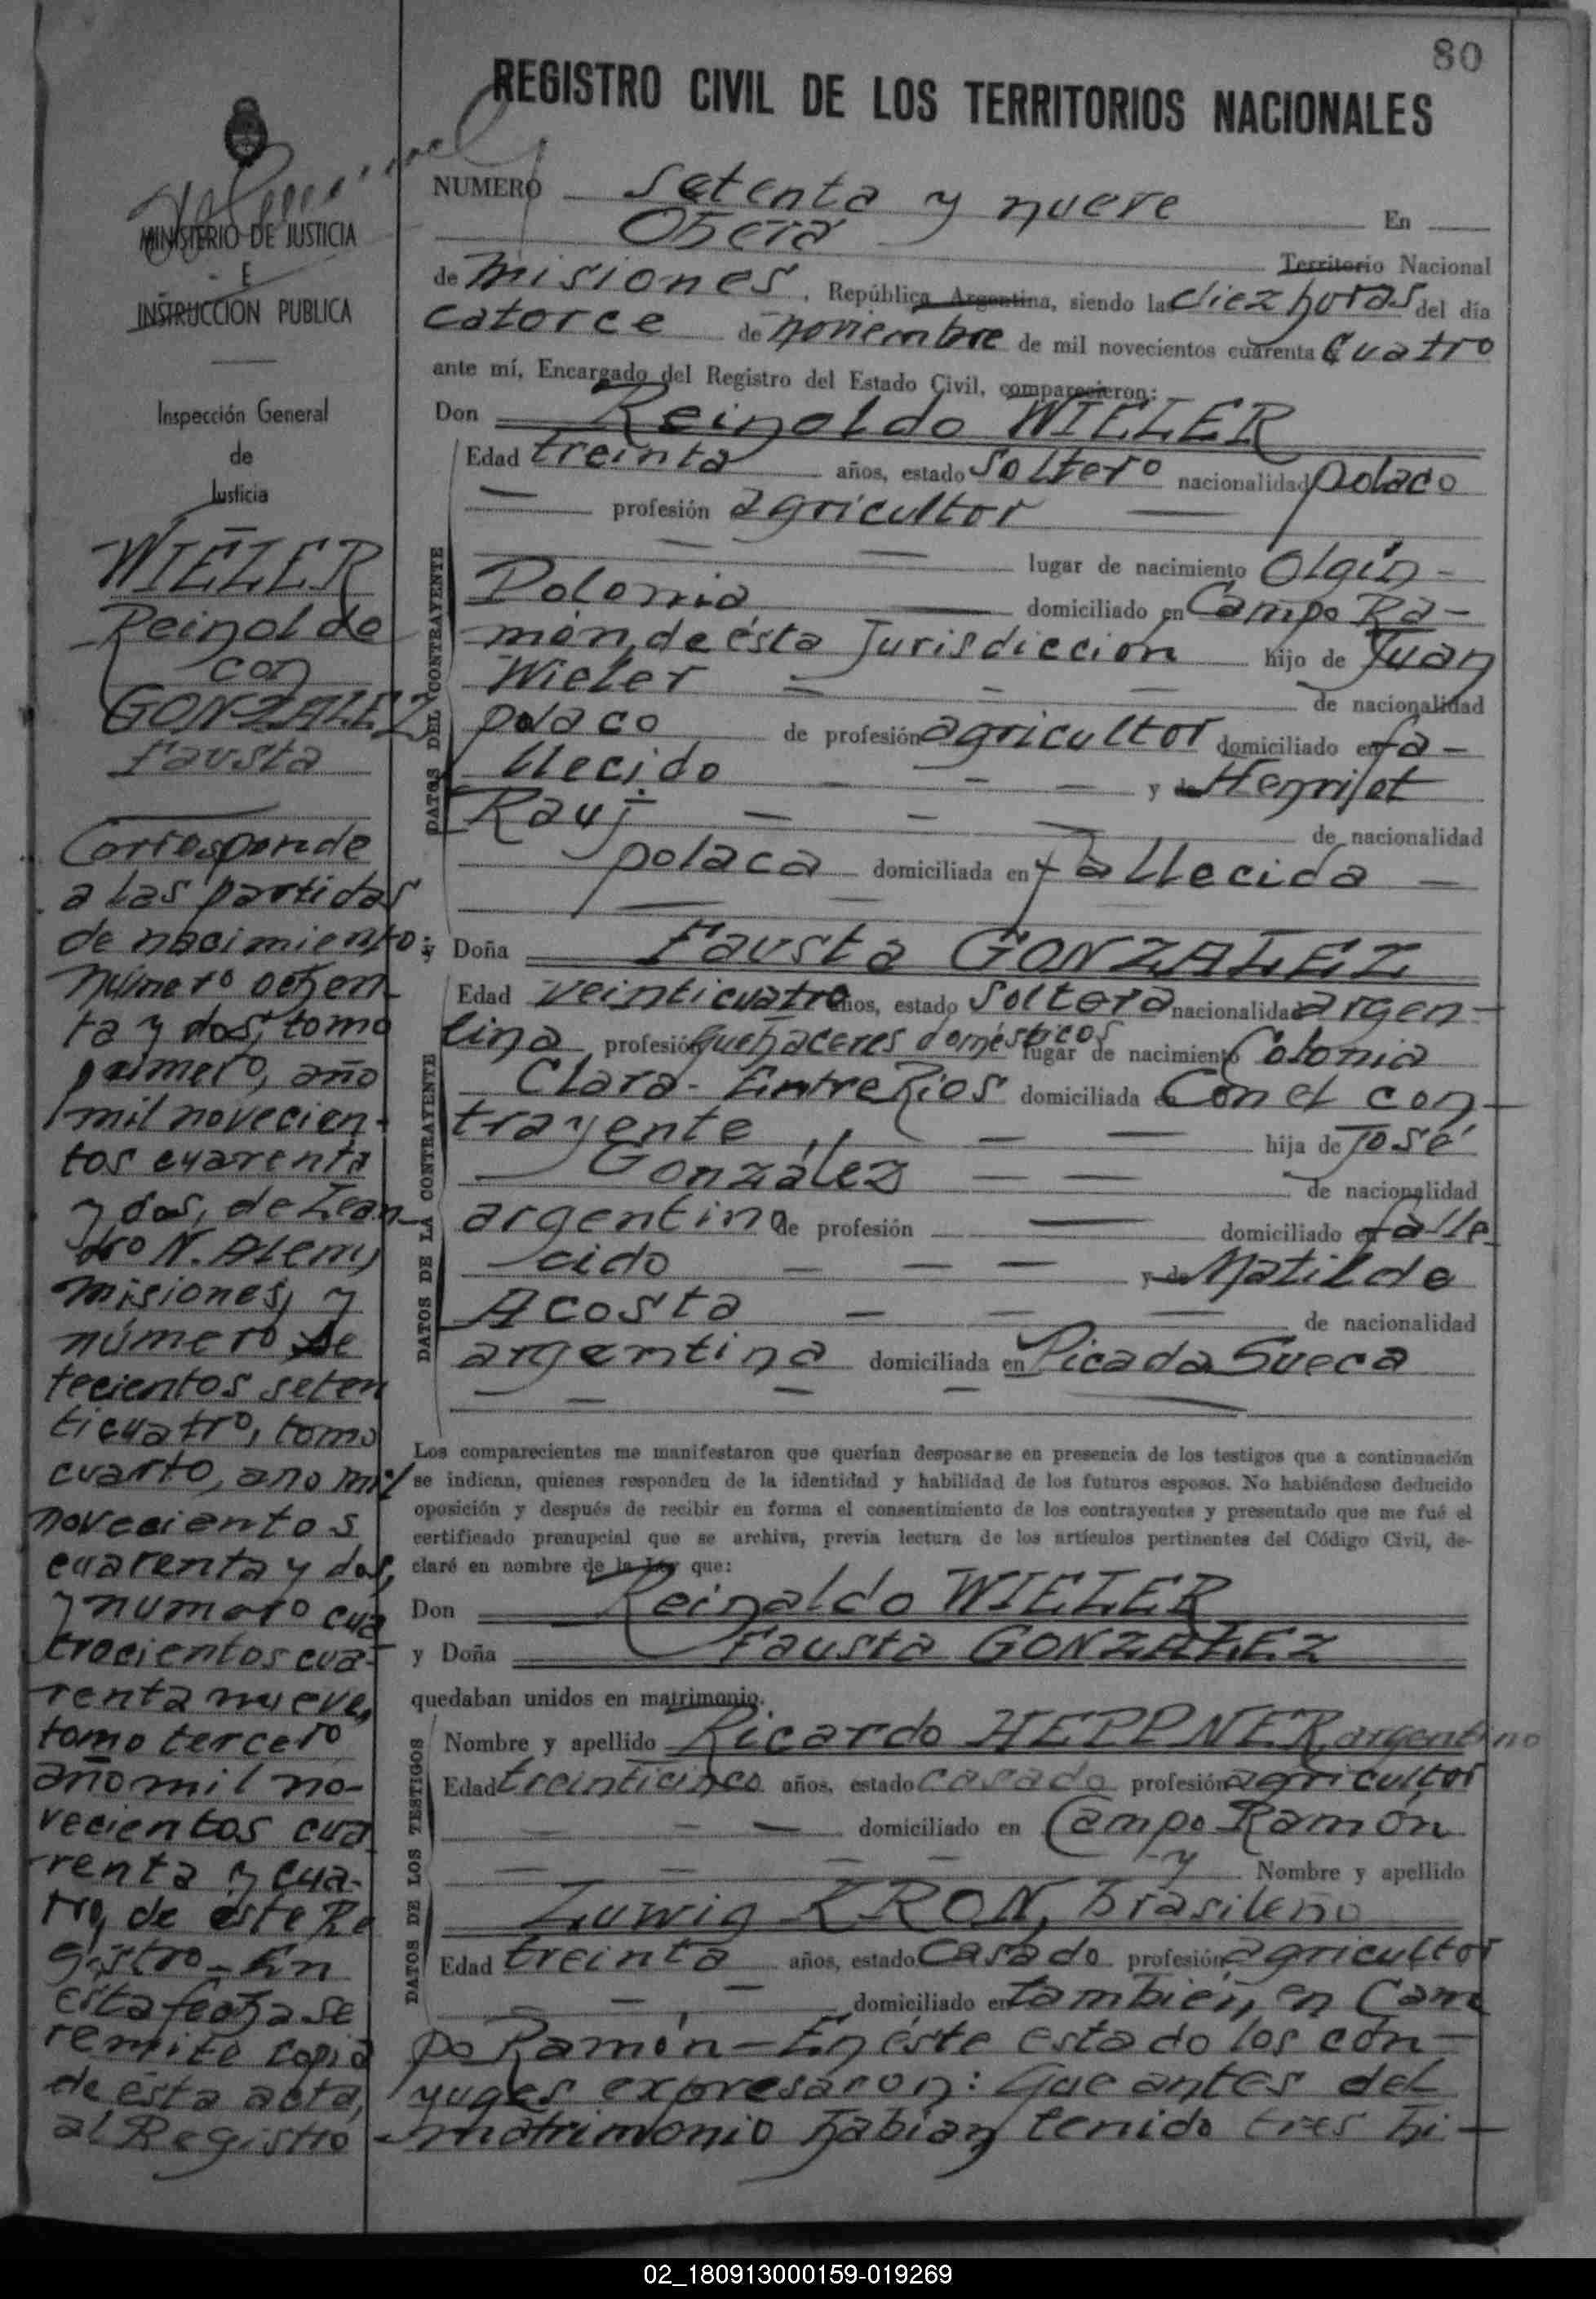 80
REGISTRO CIVIL DE LOS TERRITORIOS NACIONALES
MINISTERIO DE JUSTICIA
E
INSTRUCCION PUBLICA
Inspección General
de
Justicia
WIELER
Reinoldo
con
GONZALEZ
Fausta
Corresponde
a las partidas
de nacimiento:
número ochen-
ta y dos, tomo
primero, año
mil novecien-
tos cuarenta
y dos, de Lean-
dro N. Alem,
Misiones, y
número se
tecientos seten
ticuatro, tomo
cuarto, año mil
novecientos
cuarenta y dos,
y numero cua
trocientos cua-
renta nueve,
tomo tercero
año mil no-
vecientos cua
renta y cua-
tro, de este Re
gistro - En
esta fecha se
remite copia
de ésta acta,
al Registro
NUMERO setenta y nueve En
Oberá Territorio Nacional
de Misiones, República Argentina, siendo las diez horas del día
catorce de noviembre de mil novecientos cuarenta cuatro
ante mí, Encargado del Registro del Estado Civil, comparecieron:
Don Reinoldo WIELER
DATOS DEL CONTRAYENTE
Edad treinta años, estado soltero nacionalidad polaco
profesión agricultor
lugar de nacimiento Olgin -
Polonia domiciliado en Campo Ra-
món, de ésta Jurisdiccion hijo de Juan
Wieler de nacionalidad
polaco de profesión agricultor domiciliado en fa-
llecido y de Henrijet
Rauj de nacionalidad
polaca domiciliada en fallecida -
y Doña Fausta GONZALEZ
DATOS DE LA CONTRAYENTE
Edad veinticuatro años, estado soltera nacionalidad argen-
tina profesión quehaceres domésticos lugar de nacimiento Colonia
Clara - Entre Rios domiciliada en Con el con-
trayente hija de José
González de nacionalidad
argentino de profesión domiciliado en falle
cido y de Matilde
Acosta de nacionalidad
argentina domiciliada en Picada Sueca
Los comparecientes me manifestaron que querían desposarse en presencia de los testigos que a continuación
se indican, quienes responden de la identidad y habilidad de los futuros esposos. No habiéndose deducido
oposición y después de recibir en forma el consentimiento de los contrayentes y presentado que me fué el
certificado prenupcial que se archiva, previa lectura de los artículos pertinentes del Código Civil, de-
claré en nombre de la Ley que:
Don Reinaldo WIELER
y Doña Fausta GONZALEZ
quedaban unidos en matrimonio.
DATOS DE LOS TESTIGOS
Nombre y apellido Ricardo HEPPNER, argentino
Edad treinticinco años, estado casado profesión agricultor
domiciliado en Campo Ramón
y Nombre y apellido
Luwig KRON, brasileño
Edad treinta años, estado casado profesión agricultor
domiciliado en también, en Cam
po Ramón - En éste estado los cón-
yuges expresaron: Que antes del
matrimonio habian tenido tres hi-
02_180913000159-019269